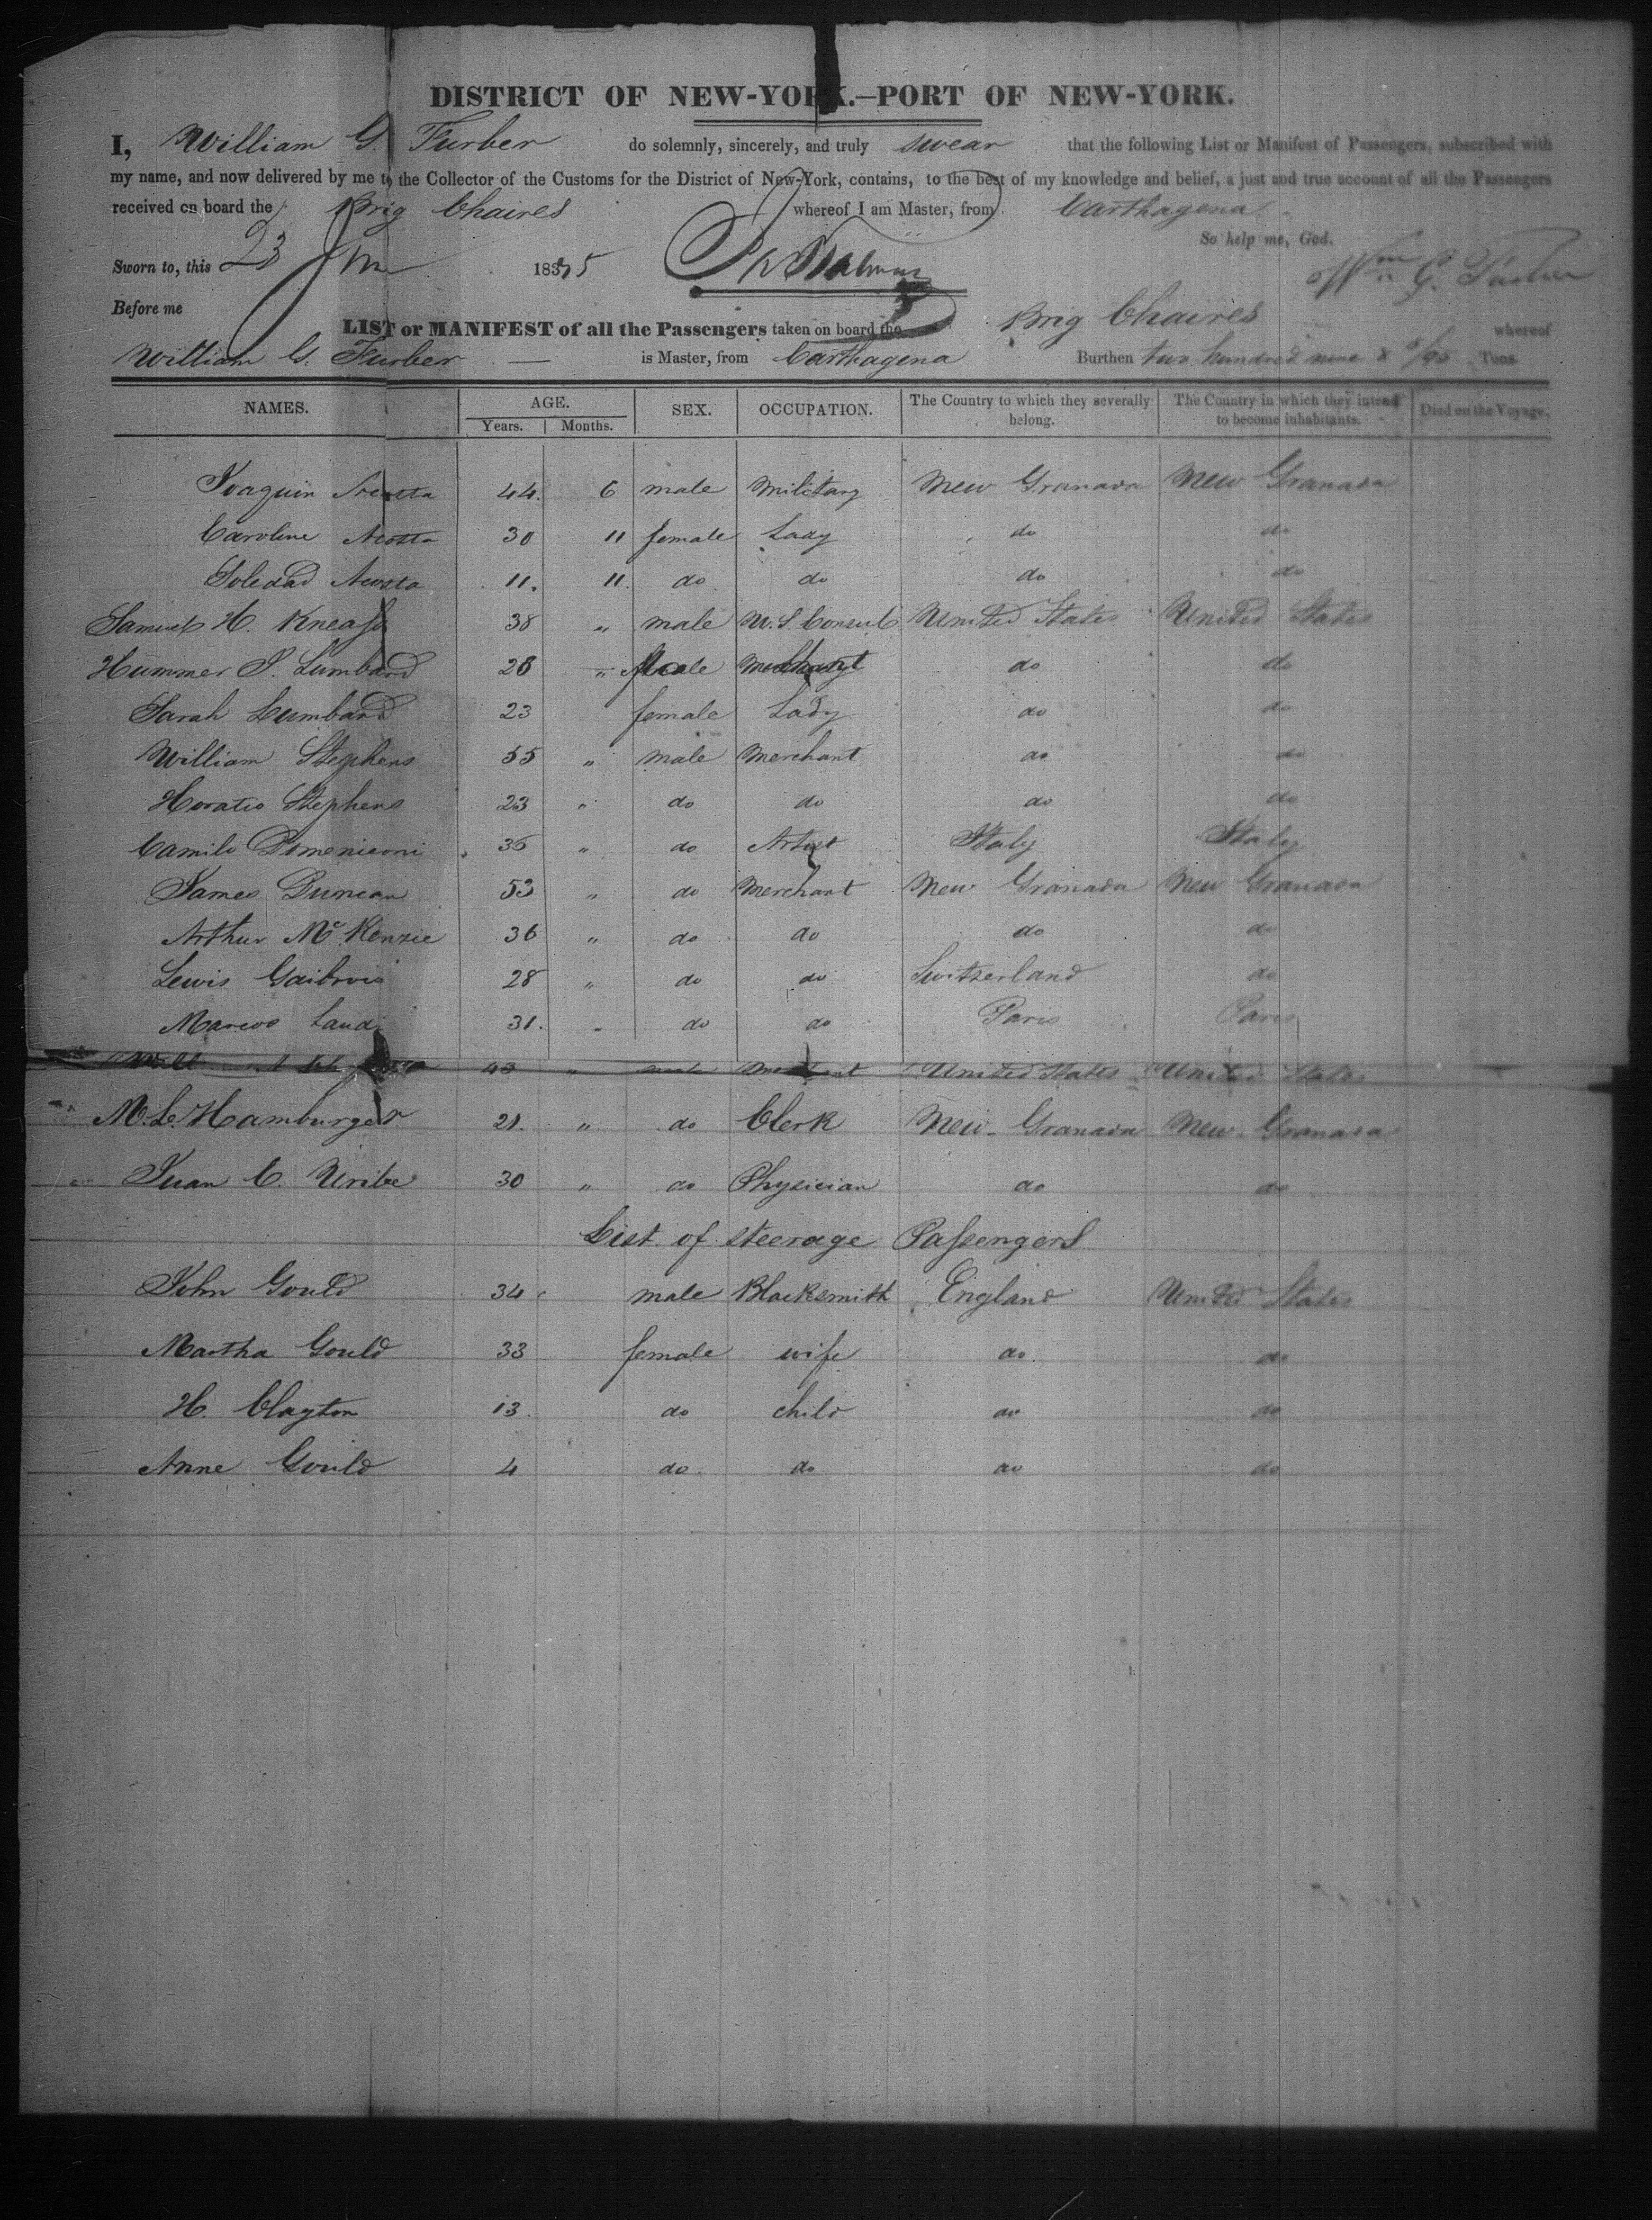 DISTRICT OF NEW-YORK.—PORT OF NEW-YORK.
I, William G. Furber do solemnly, sincerely, and truly swear that the following List or Manifest of Passengers, subscribed with
my name, and now delivered by me to the Collector of the Customs for the District of New-York, contains, to the best of my knowledge and belief, a just and true account of all the Passengers
received on board the Brig Chaires whereof I am Master, from Carthagena
So help me, God.
Sworn to, this 23 183 5
Wm G. Furber
Before me
LIST or MANIFEST of all the Passengers taken on board the Brig Chaires whereof
William G. Furber — is Master, from Carthagena Burthen two hundred nine & /95 Tons
NAMES. AGE. SEX. OCCUPATION. The Country to which they severally belong. The Country in which they intend to become inhabitants. Died on the Voyage.
Years. Months.
Joaquin Acosta 44. 6 male Military New Granada New Granada
Caroline Acosta 30 11 female Lady do do
Soledad Acosta 11. 11. do do do do
Samuel H. Kneass 38 " male U.S. Consul United States United States
Hummer S. Lumbard 28 " Male Merchant do do
Sarah Lumbard 23 female Lady do do
William Stephens 55 " male Merchant do do
Horatio Stephens 23 " do do do do
Camilo Domeniconi 35 " do Artist Italy Italy
James Duncan 53 " do Merchant New Granada New Granada
Arthur McKenzie 36 " do do do do
Lewis Gaibrois 28 " do do Switzerland do
Marcos 31. " do do Paris Paris
43 " male Merchant United States United States
M. L. Hamburger 21. " do Clerk New-Granada New-Granada
Juan C. Uribe 30 " do Physician do do
List of steerage Passengers
John Gould 34 male Blacksmith England United States
Martha Gould 33 female wife do do
H. Clayton 13. do child do do
Anne Gould 4 do do do do